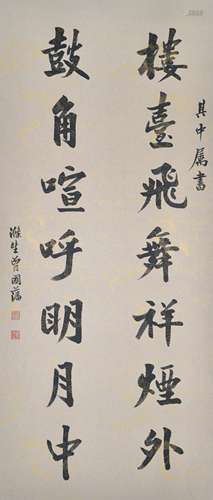 其中属書
樓臺飛舞祥煙外
鼓角喧呼明月中
滌生曾國藩